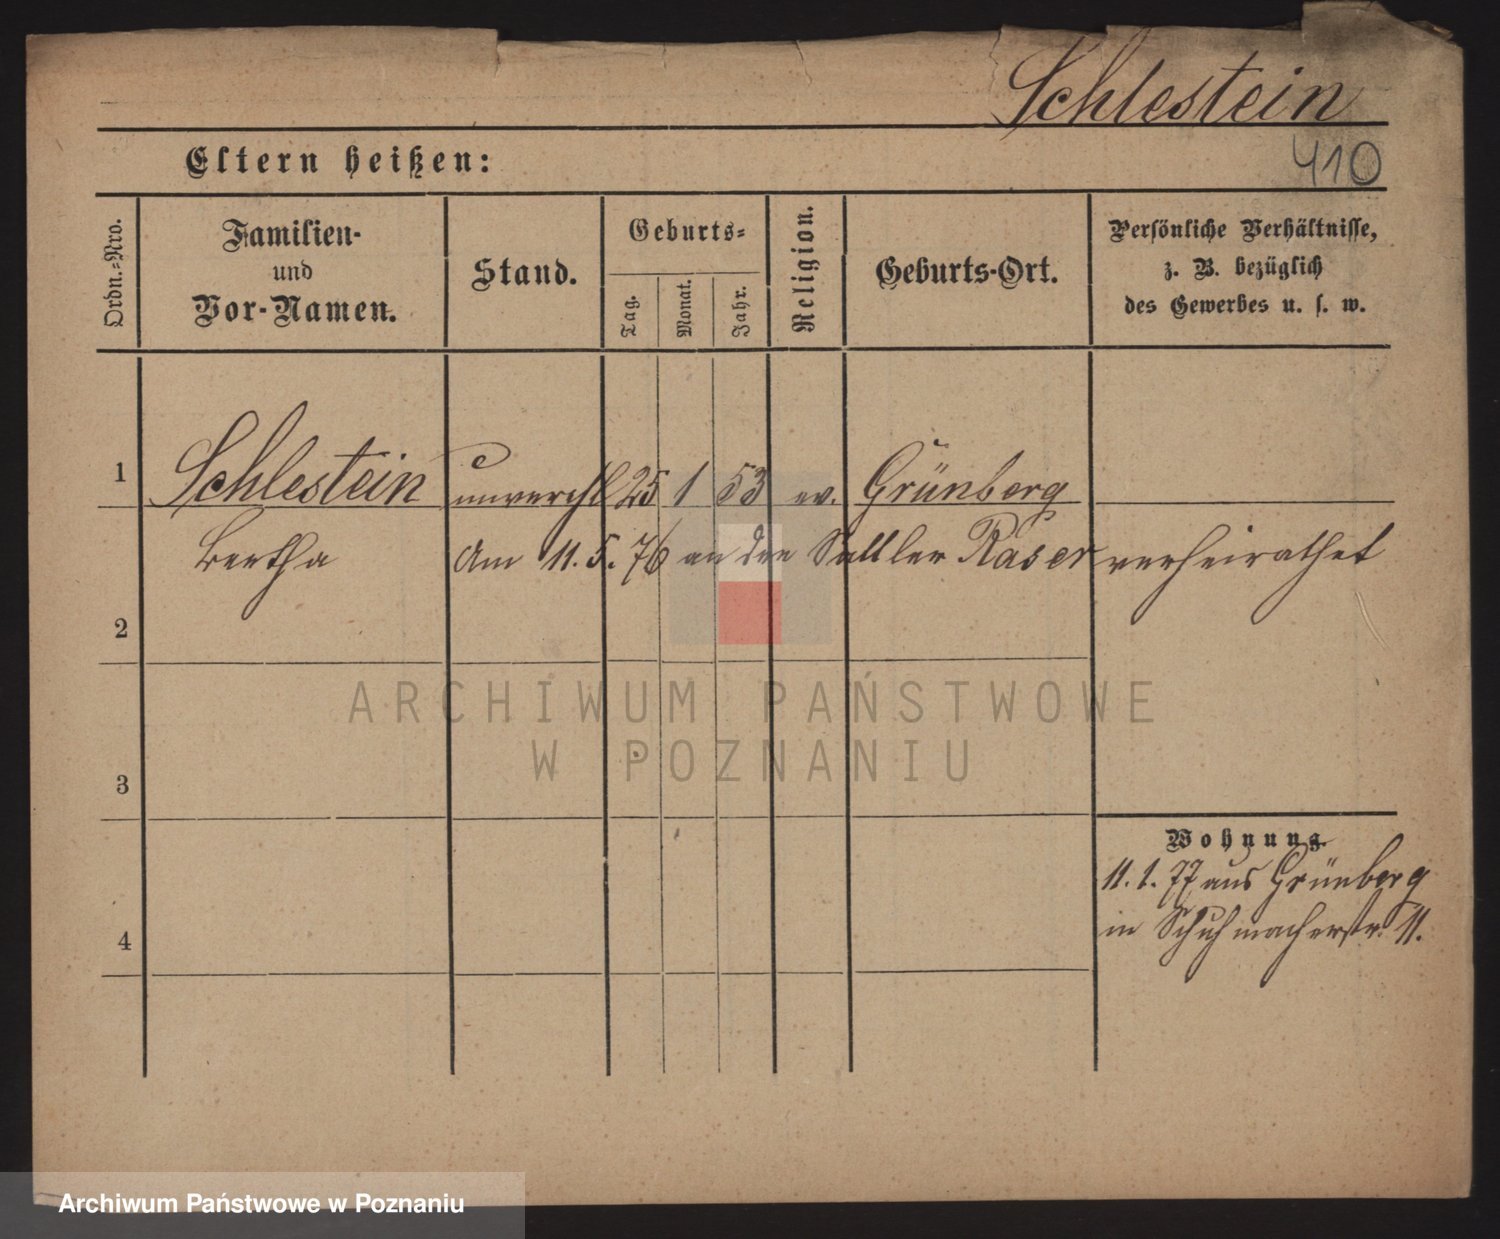 Schlestein
410
Eltern heißen:
Ordn.-Nro.
Familien-
und
Vor-Namen.
Stand.
Geburts-
Tag.
Monat.
Jahr.
Religion.
Geburts-Ort.
Persönliche Verhältnisse,
z. B. bezüglich
des Gewerbes u. s. w.
1 Schlestein unverehl 25 1 53 ev. Grünberg
Bertha Am 11. 5. 76 an den Sattler Raser verheirathet
2
ARCHIWUM PAŃSTWOWE
W POZNANIU
3
Wohnung.
11. 1. 77 aus Grünberg
in Schuhmacherstr. 11.
4
Archiwum Państwowe w Poznaniu